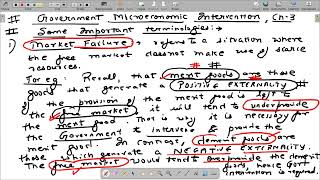 # Government Microeconomic Intervention, Ch-3
# Some important terminologies:→
① Market Failure → refers to a situation where
the free market does not make use of scarce
resources.
For eg: Recall, that merit goods are those
goods that generate a POSITIVE EXTERNALITY. If
the provision of the merit good is left to
the free market, it will tend to underprovide
the merit good. That is why it is necessary for
the Government to intervene & provide the
merit good. In contrast, demerit goods are
those which generate a NEGATIVE EXTERNALITY.
The free market would tend to overprovide the demerit
goods, hence Govt
intervention is required.